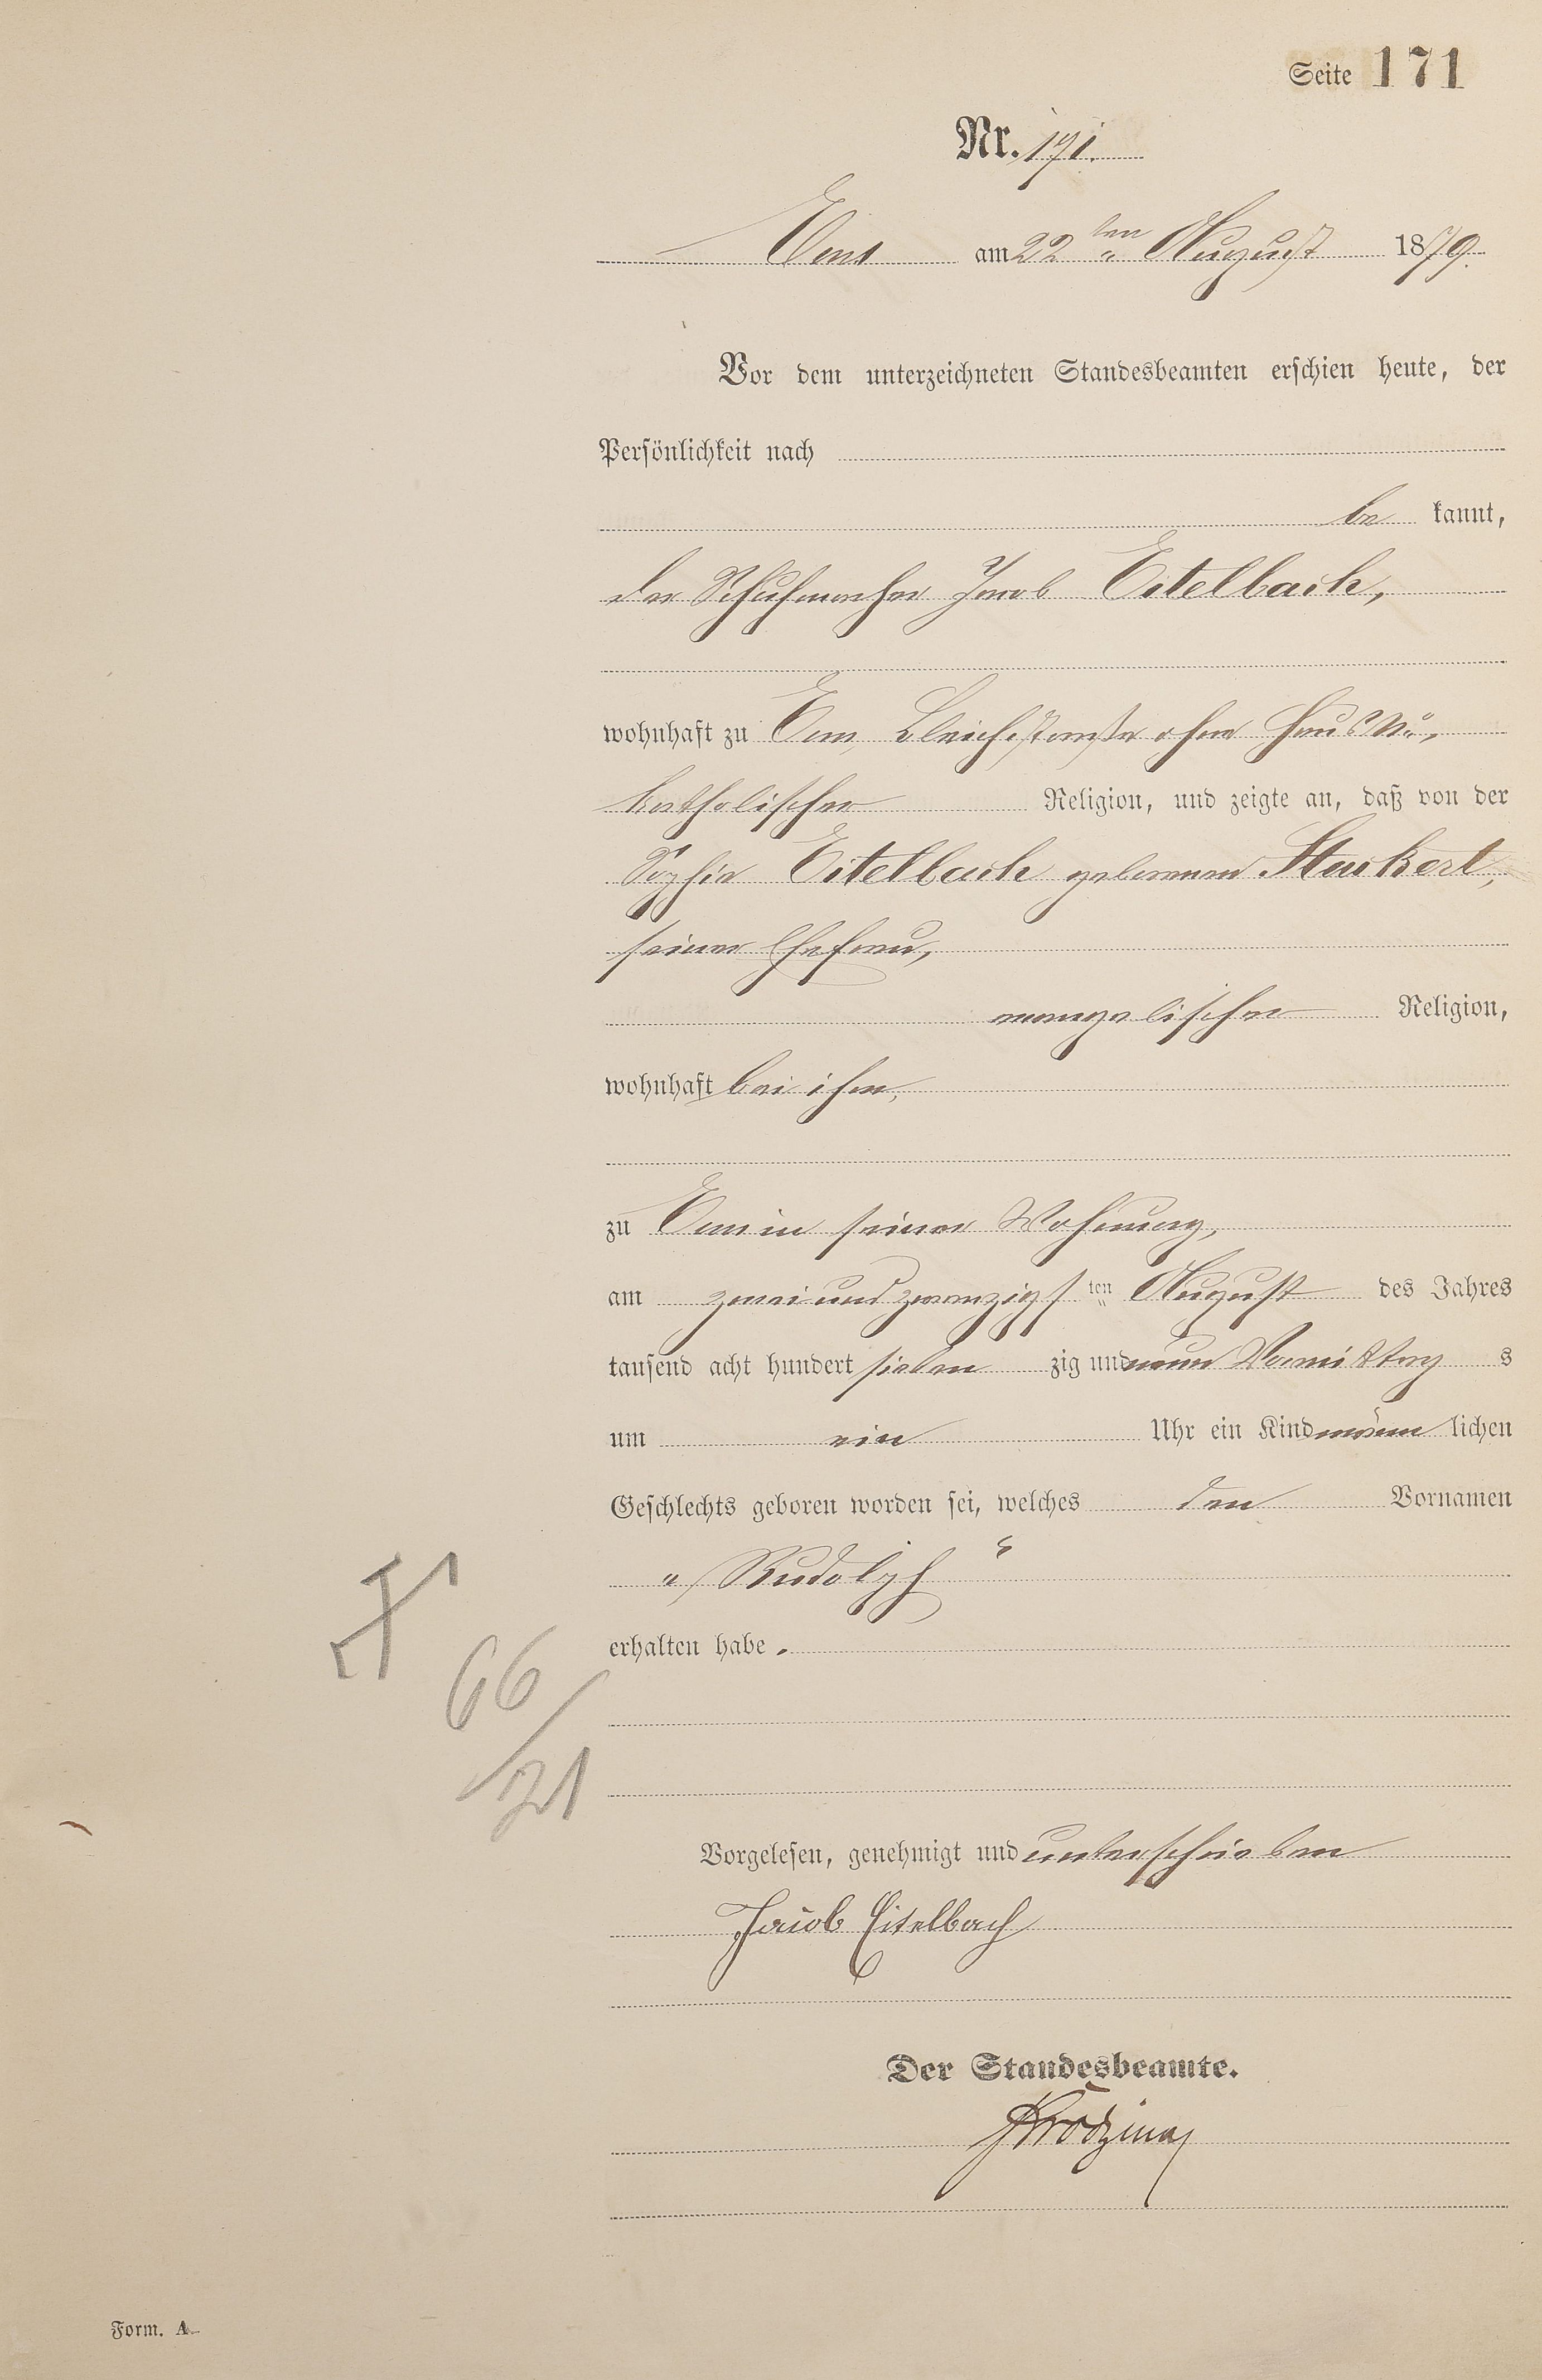 Seite 171
Nr. 171.
Ems am 22ten August 1879.
Vor dem unterzeichneten Standesbeamten erschien heute, der
Persönlichkeit nach
be kannt,
der Schuhmacher Jacob Eitelbach,
wohnhaft zu Ems, Bleichstraße ohne Haus No,
katholischer Religion, und zeigte an, daß von der
Sophie Eitelbach geborenen Stuckert,
seiner Ehefrau,
evangelischer Religion,
wohnhaft bei ihm,
zu Ems in seiner Wohnung,
am zweiundzwanzigsten August des Jahres
tausend acht hundert sieben zig und neun Vormittag s
um ein Uhr ein Kind männ lichen
Geschlechts geboren worden sei, welches den Vornamen
„Rudolph“
erhalten habe.
66/21
Vorgelesen, genehmigt und unterschrieben
Jacob Eitelbach
Der Standesbeamte.
Form. A.